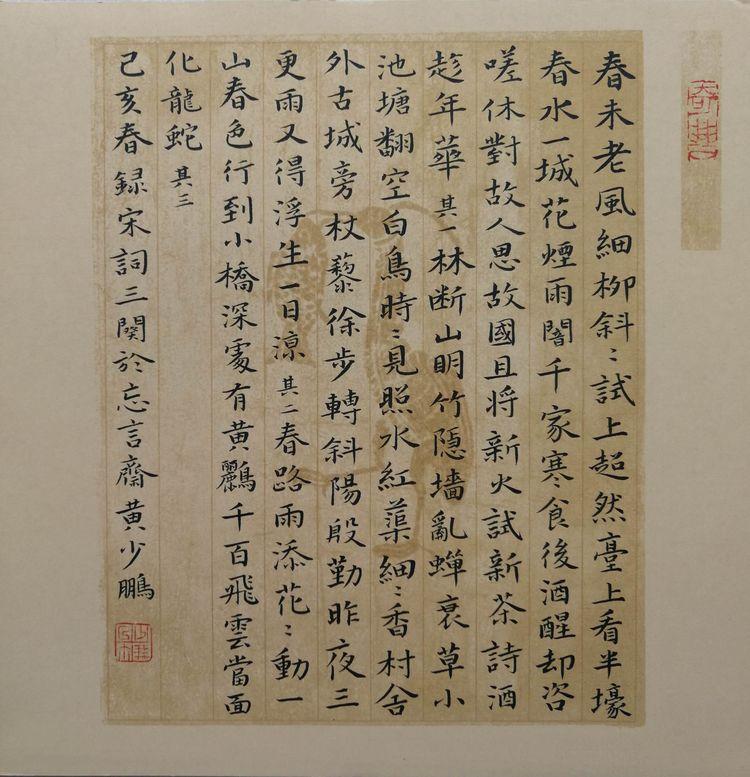 春未老風細柳斜〻試上超然臺上看半壕
春水一城花煙雨闇千家寒食後酒醒却咨
嗟休對故人思故國且将新火試新茶詩酒
趁年華其一林断山明竹隱墙亂蟬衰草小
池塘翻空白鳥時〻見照水紅蕖細〻香村舍
外古城旁杖藜徐步轉斜陽殷勤昨夜三
更雨又得浮生一日凉其二春路雨添花〻動一
山春色行到小橋深處有黄鸝千百飛雲當面
化龍蛇其三
己亥春録宋詞三闋於忘言齋黄少鵬